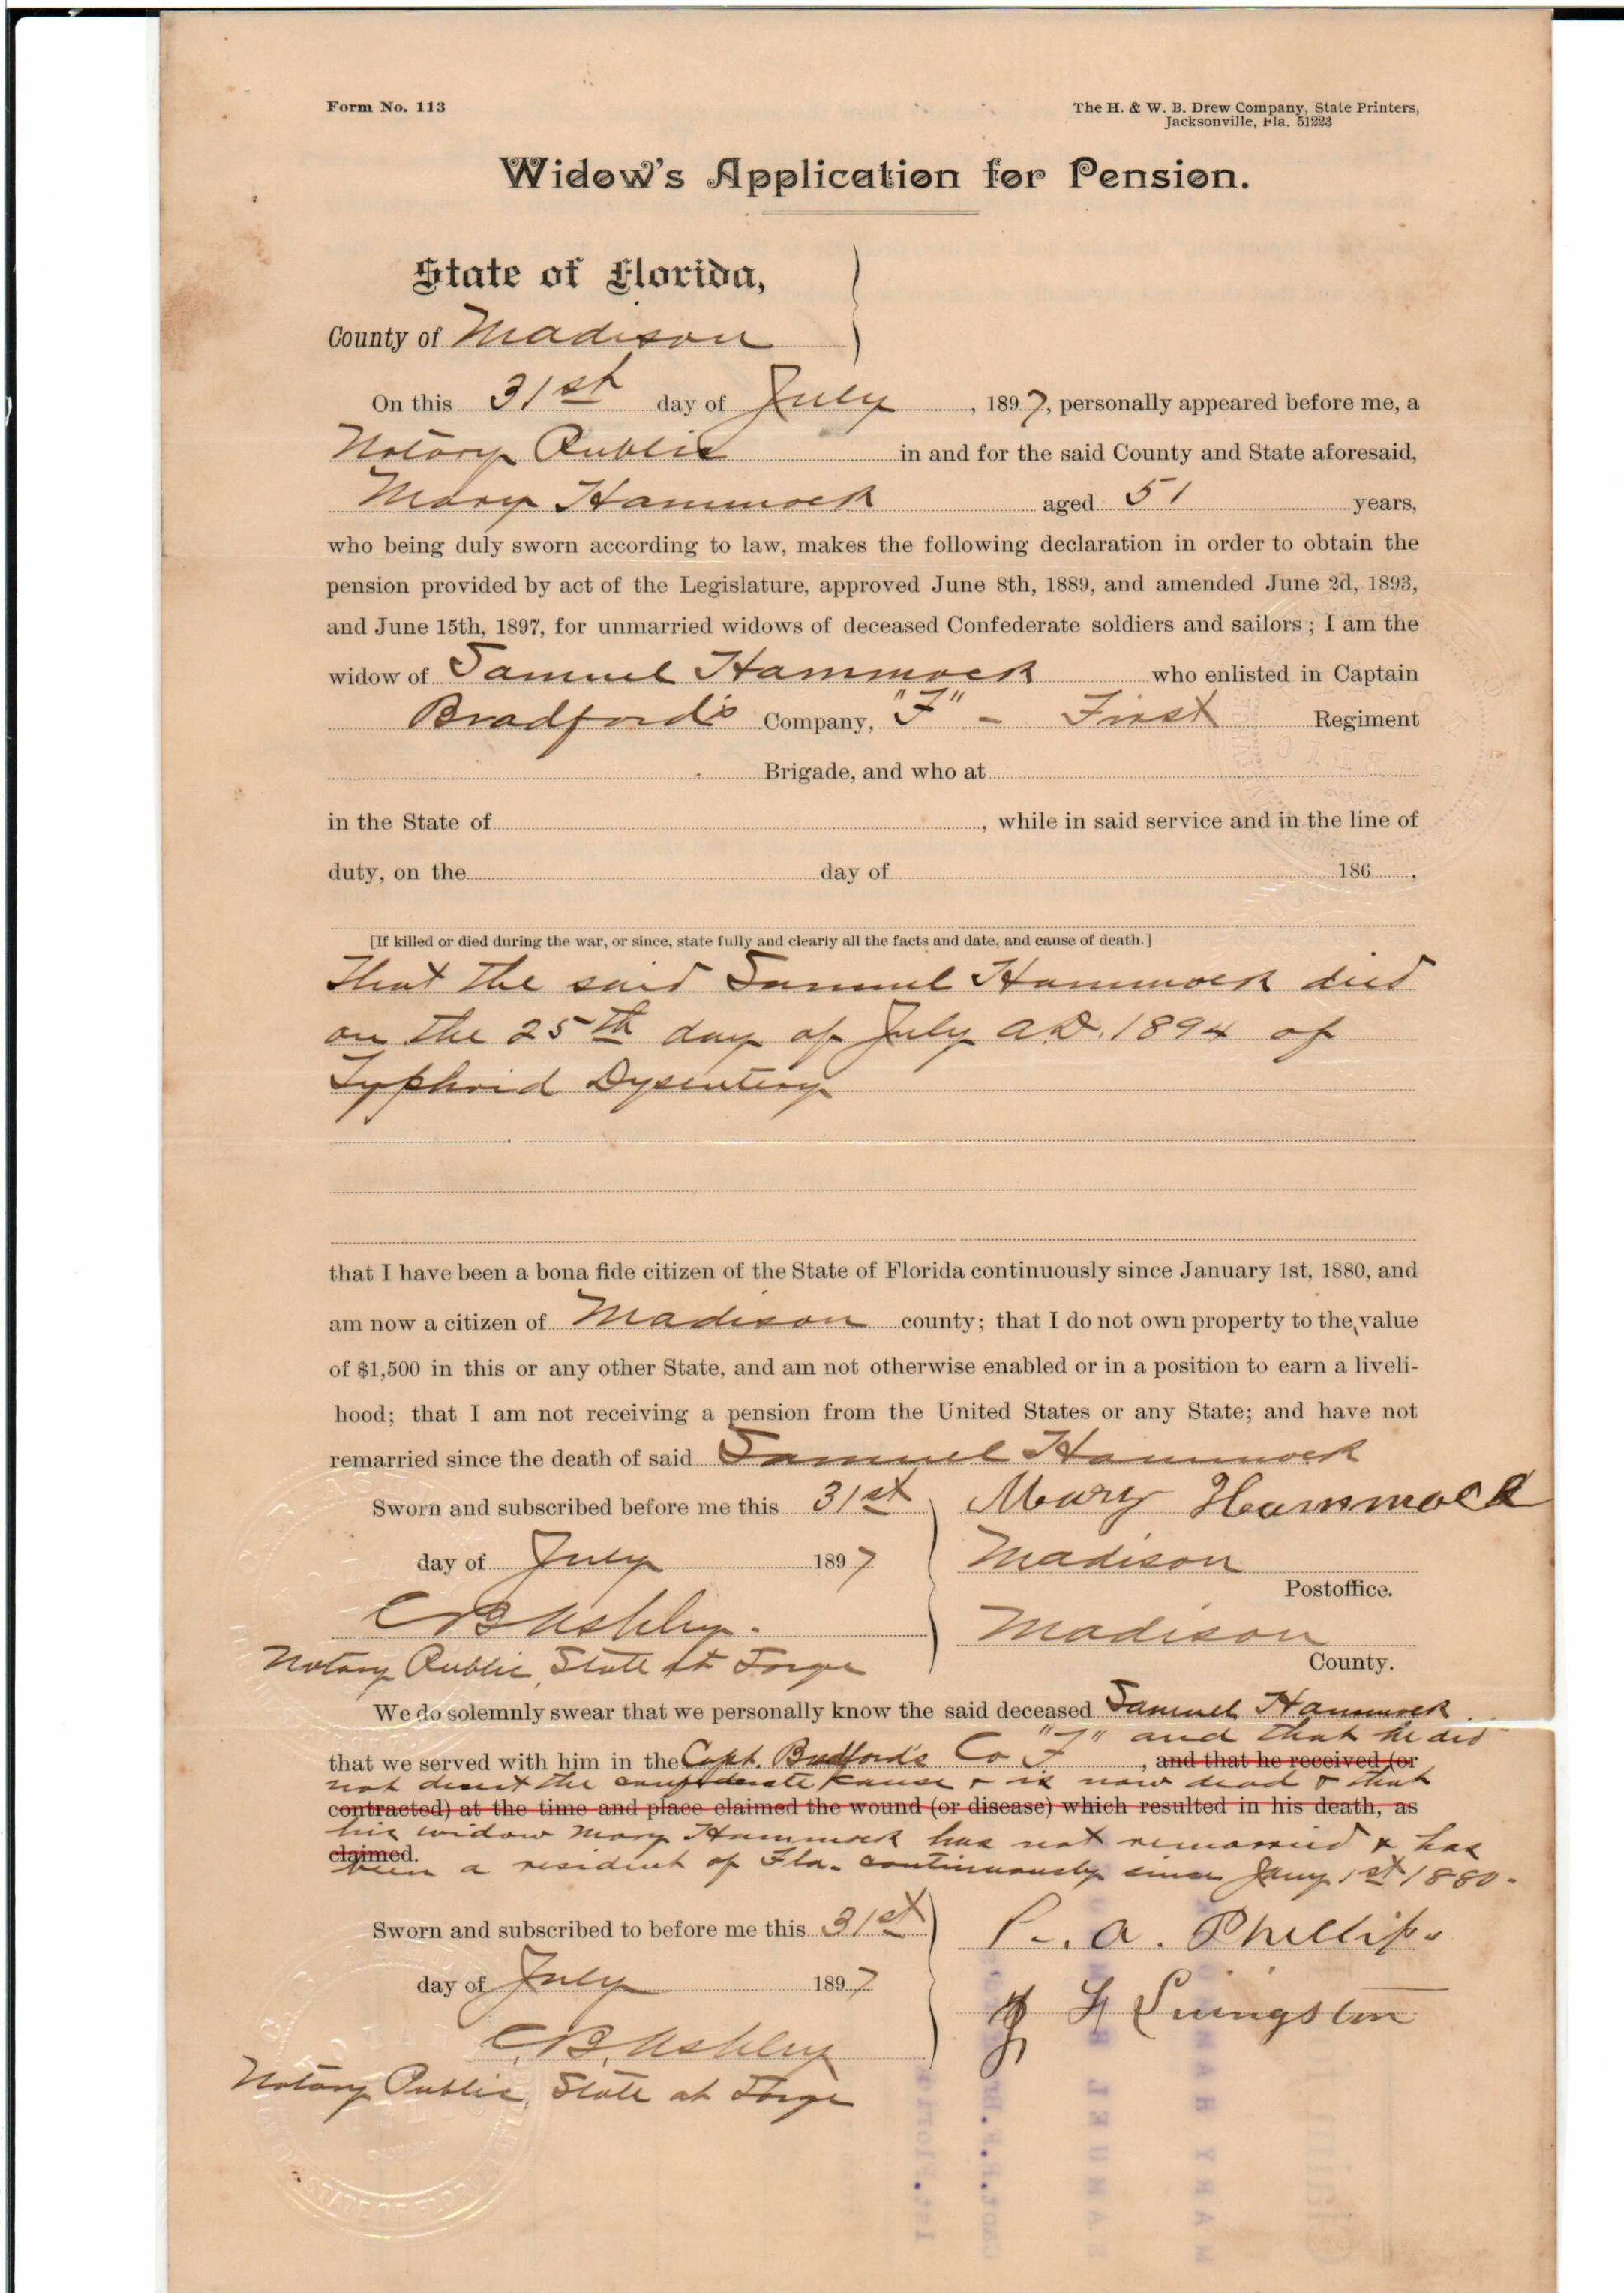 Form No. 113
The H. & W. B. Drew Company, State Printers,
Jacksonville, Fla. 51223
Widow's Application for Pension.
State of Florida,
County of Madison
On this 31st day of July, 1897, personally appeared before me, a
Notary Public in and for the said County and State aforesaid,
Mary Hammock aged 51 years,
who being duly sworn according to law, makes the following declaration in order to obtain the
pension provided by act of the Legislature, approved June 8th, 1889, and amended June 2d, 1893,
and June 15th, 1897, for unmarried widows of deceased Confederate soldiers and sailors; I am the
widow of Samuel Hammock who enlisted in Captain
Bradford's Company, "F" - First Regiment
Brigade, and who at
in the State of, while in said service and in the line of
duty, on the day of 186,
[If killed or died during the war, or since, state fully and clearly all the facts and date, and cause of death.]
That the said Samuel Hammock died
on the 25th day of July A.D. 1894 of
Typhoid Dysentery
that I have been a bona fide citizen of the State of Florida continuously since January 1st, 1880, and
am now a citizen of Madison county; that I do not own property to the value
of $1,500 in this or any other State, and am not otherwise enabled or in a position to earn a liveli-
hood; that I am not receiving a pension from the United States or any State; and have not
remarried since the death of said Samuel Hammock
Sworn and subscribed before me this 31st Mary Hammock
day of July 1897 Madison
Postoffice.
C B Ashley. Madison
Notary Public, State at Large County.
We do solemnly swear that we personally know the said deceased Samuel Hammock
that we served with him in the Capt. Bradford's Co "F" and that he did, and that he received (or
not desert the confederate cause & is now dead & that
contracted) at the time and place claimed the wound (or disease) which resulted in his death, as
his widow Mary Hammock has not remarried & has
claimed.
been a resident of Fla. continuously since Jany 1st 1880.
Sworn and subscribed to before me this 31st
P. A. Phillips
day of July 1897
J H Livingston
C. B. Ashley
Notary Public, State at Large